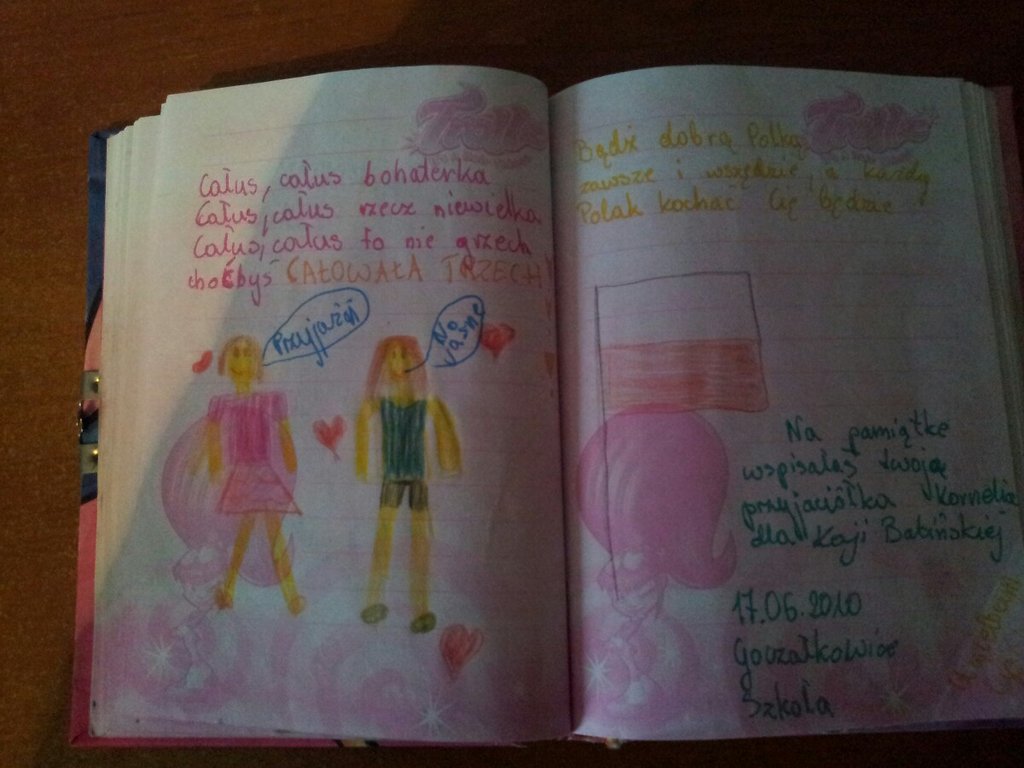 Całus, całus bohaterka
Całus, całus rzecz niewielka
Całus, całus to nie grzech
choćbyś CAŁOWAŁA TRZECH
Przyjaźń
No
vaśne
Bądź dobrą Polką
zawsze i wszędzie, a każdy
Polak kochać Cię będzie
Na pamiątkę
wspisałaś twoja
przyjaciółka Kornelia
dla Kaji Babińskiej
17.06.2010
Goczałkowice
Szkoła